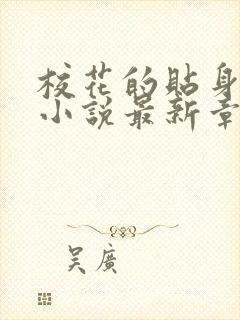 校花的貼身
小說最新章
吴廣